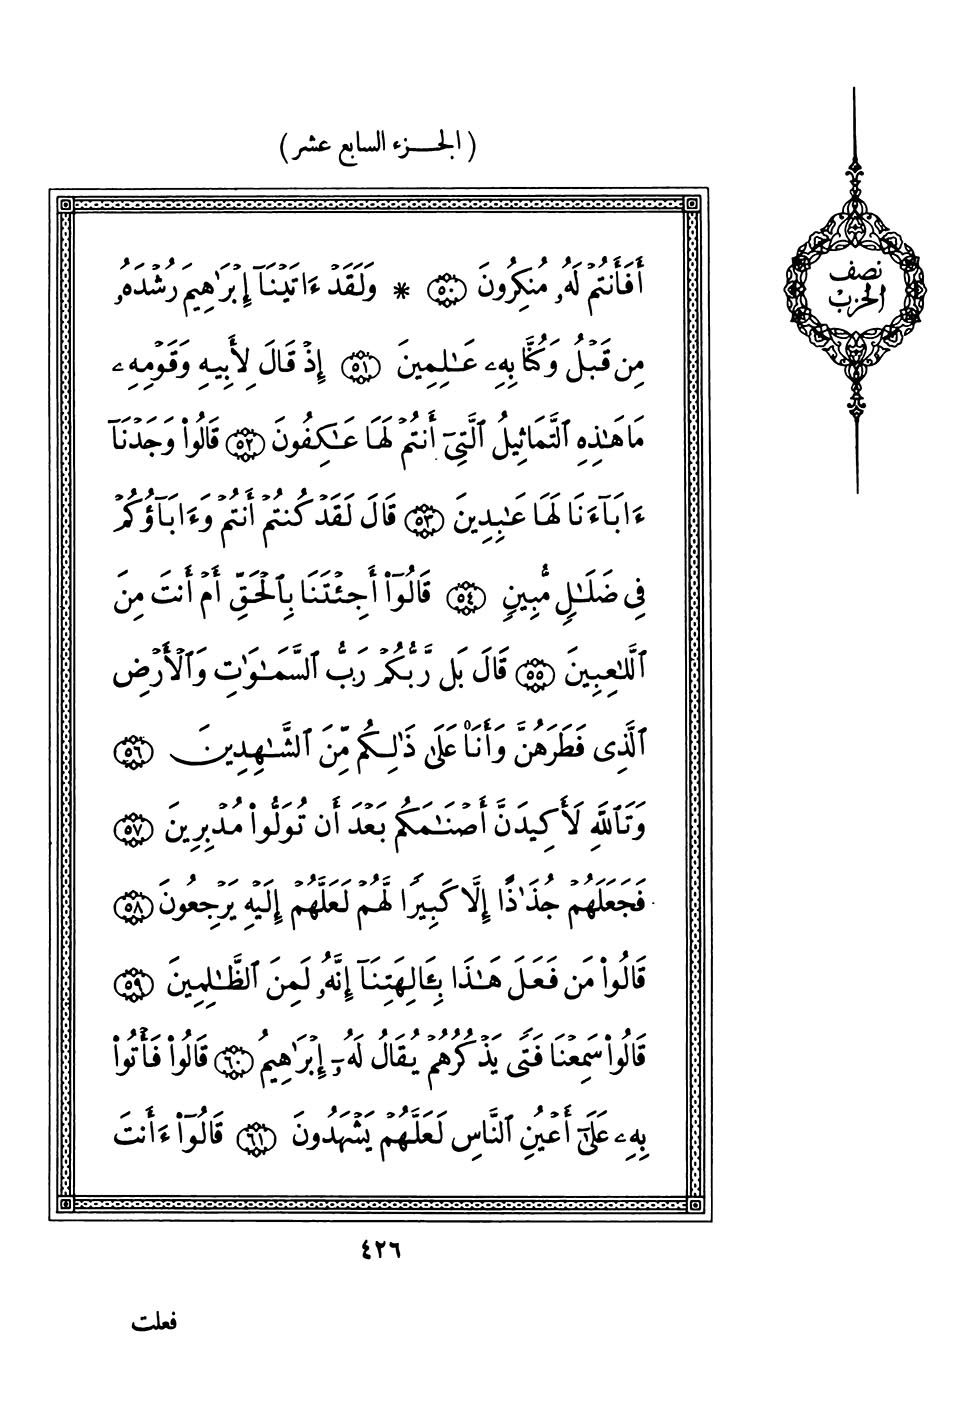 (الجـزء السابع عشر)
نصف
الحزب
أَفَأَنتُمْ لَهُۥ مُنكِرُونَ ۝٥٠ * وَلَقَدْ ءَاتَيْنَآ إِبْرَٰهِيمَ رُشْدَهُۥ
مِن قَبْلُ وَكُنَّا بِهِۦ عَـٰلِمِينَ ۝٥١ إِذْ قَالَ لِأَبِيهِ وَقَوْمِهِۦ
مَا هَـٰذِهِ ٱلتَّمَاثِيلُ ٱلَّتِىٓ أَنتُمْ لَهَا عَـٰكِفُونَ ۝٥٢ قَالُوا۟ وَجَدْنَآ
ءَابَآءَنَا لَهَا عَـٰبِدِينَ ۝٥٣ قَالَ لَقَدْ كُنتُمْ أَنتُمْ وَءَابَآؤُكُمْ
فِى ضَلَـٰلٍ مُّبِينٍ ۝٥٤ قَالُوٓا۟ أَجِئْتَنَا بِٱلْحَقِّ أَمْ أَنتَ مِنَ
ٱللَّـٰعِبِينَ ۝٥٥ قَالَ بَل رَّبُّكُمْ رَبُّ ٱلسَّمَـٰوَٰتِ وَٱلْأَرْضِ
ٱلَّذِى فَطَرَهُنَّ وَأَنَا۠ عَلَىٰ ذَٰلِكُم مِّنَ ٱلشَّـٰهِدِينَ ۝٥٦
وَتَٱللَّهِ لَأَكِيدَنَّ أَصْنَـٰمَكُم بَعْدَ أَن تُوَلُّوا۟ مُدْبِرِينَ ۝٥٧
فَجَعَلَهُمْ جُذَٰذًا إِلَّا كَبِيرًا لَّهُمْ لَعَلَّهُمْ إِلَيْهِ يَرْجِعُونَ ۝٥٨
قَالُوا۟ مَن فَعَلَ هَـٰذَا بِـَٔالِهَتِنَآ إِنَّهُۥ لَمِنَ ٱلظَّـٰلِمِينَ ۝٥٩
قَالُوا۟ سَمِعْنَا فَتًى يَذْكُرُهُمْ يُقَالُ لَهُۥٓ إِبْرَٰهِيمُ ۝٦٠ قَالُوا۟ فَأْتُوا۟
بِهِۦ عَلَىٰٓ أَعْيُنِ ٱلنَّاسِ لَعَلَّهُمْ يَشْهَدُونَ ۝٦١ قَالُوٓا۟ ءَأَنتَ
٤٢٦
فعلت